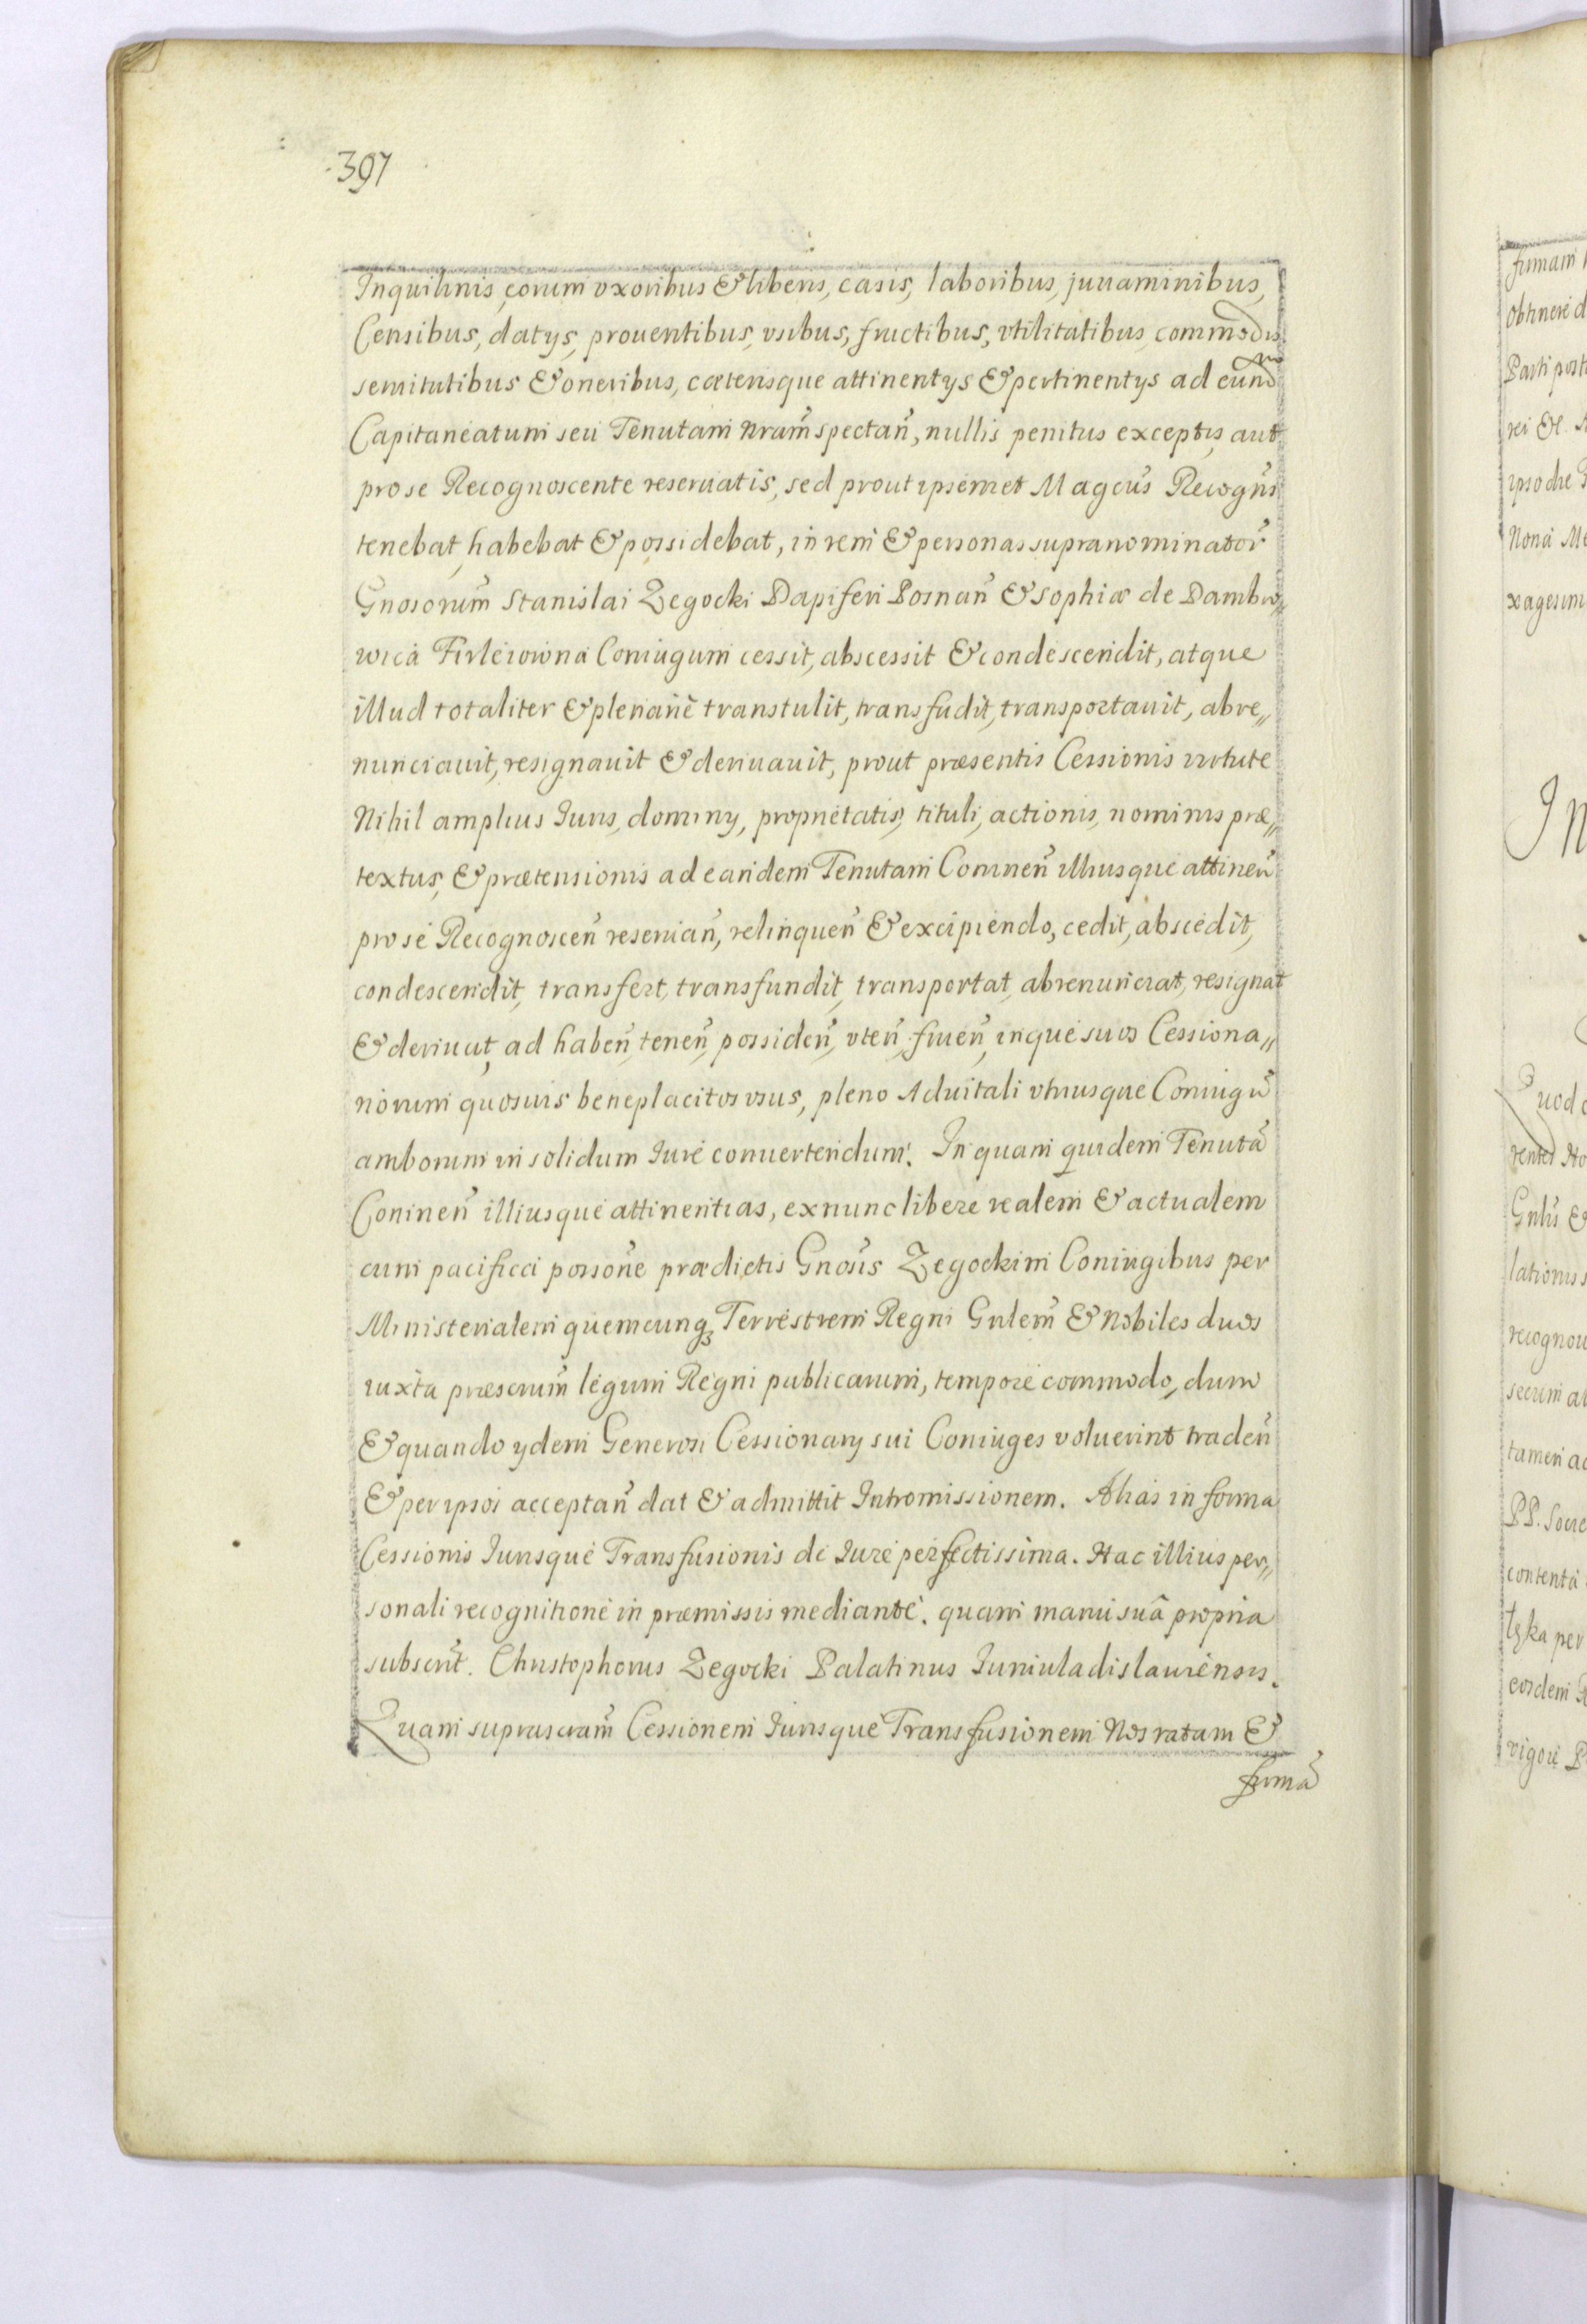 397
Inquilinis, eorum vxoribus & liberis, casis, laboribus, juuaminibus,
Censibus, datys, prouentibus, vsibus, fructibus, vtilitatibus, commodis
seruitutibus & oneribus, cæterisque attinentys & pertinentys ad eund
Capitaneatum seu Tenutam nram̃ spectañ, nullis penitus exceptis, aut
pro se Recognoscente reseruatis, sed prout ipsemet Magcus̃ Recogñs
tenebat, habebat & possidebat, in rem & personas supranominator̃
Gnosorum̃ Stanislai Zegocki Dapiferi Posnañ & Sophiæ de Dambro„
wica Firleiowna Coniugum cessit, abscessit & condescendit, atque
illud totaliter & plenariè transtulit, transfudit, transportauit, abre„
nunciauit, resignauit & deriuauit, prout præsentis Cessionis virtute
Nihil amplius Iuris, dominy, proprietatis, tituli, actionis, nominis præ„
textus, & prætensionis ad eandem Tenutam Coninen̄ illiusque attinen̄
pro se Recognoscen̄ reseruan̄, relinquen̄ & excipiendo, cedit, abscedit,
condescendit, transfert, transfundit, transportat, abrenunciat, resignat
& deriuat, ad haben̄, tenen̄, possiden̄, vten̄, fruen̄, inque suos Cessiona„
riorum quosuis beneplacitos vsus, pleno Aduitali vtriusque Coniugũ
amborum in solidum Iure conuertendum. In quam quidem Tenutã
Coninen̄ illiusque attinentias, ex nunc libere realem & actualem
cum pacifica possone prædictis Gnosis̃ Zegockim Coniugibus per
Ministerialem quemcunq₃ Terrestrem Regni Gnlem̃ & Nobiles duos
iuxta præscrum̃ legum Regni publicarum, tempore commodo, dum
& quando ydem Generosi Cessionary sui Coniuges voluerint traden̄
& per ipsos acceptan̄ dat & admittit Intromissionem. Alias in forma
Cessionis Iurisque Transfusionis de Iure perfectissima. Hac illius per„
sonali recognitione in præmissis mediante. quam manu suâ propria
subscrit̃. Christophorus Zegocki Palatinus Iuniuladislauiensis.
Quam suprascram̃ Cessionem Iurisque Transfusionem Nos ratam &
firmã